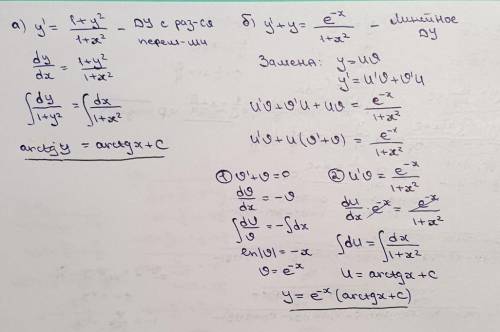 а) y' = \frac{1+y^2}{1+x^2} – ДУ с раз-ся
перем-ми
\frac{dy}{dx} = \frac{1+y^2}{1+x^2}
∫\frac{dy}{1+y^2} = ∫\frac{dx}{1+x^2}
arctgy = arctgx+C
б) y'+y = \frac{e^{-x}}{1+x^2} – Линейное
ДУ
Замена: y=uϑ
y'=u'ϑ+ϑ'u
u'ϑ+ϑ'u+uϑ = \frac{e^{-x}}{1+x^2}
u'ϑ+u(ϑ'+ϑ) = \frac{e^{-x}}{1+x^2}
① ϑ'+ϑ=0
\frac{dϑ}{dx} = -ϑ
∫\frac{dϑ}{ϑ} = -∫dx
ln|ϑ| = -x
ϑ = e^{-x}
② u'ϑ = \frac{e^{-x}}{1+x^2}
\frac{du}{dx} · e^{-x} = \frac{e^{-x}}{1+x^2}
∫du = ∫\frac{dx}{1+x^2}
u = arctgx+C
y = e^{-x}(arctgx+C)